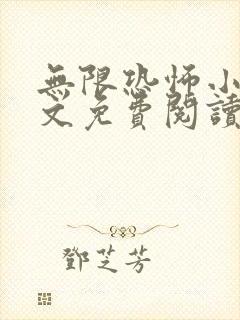 無限恐怖小
文免費閱讀
鄧芝芳